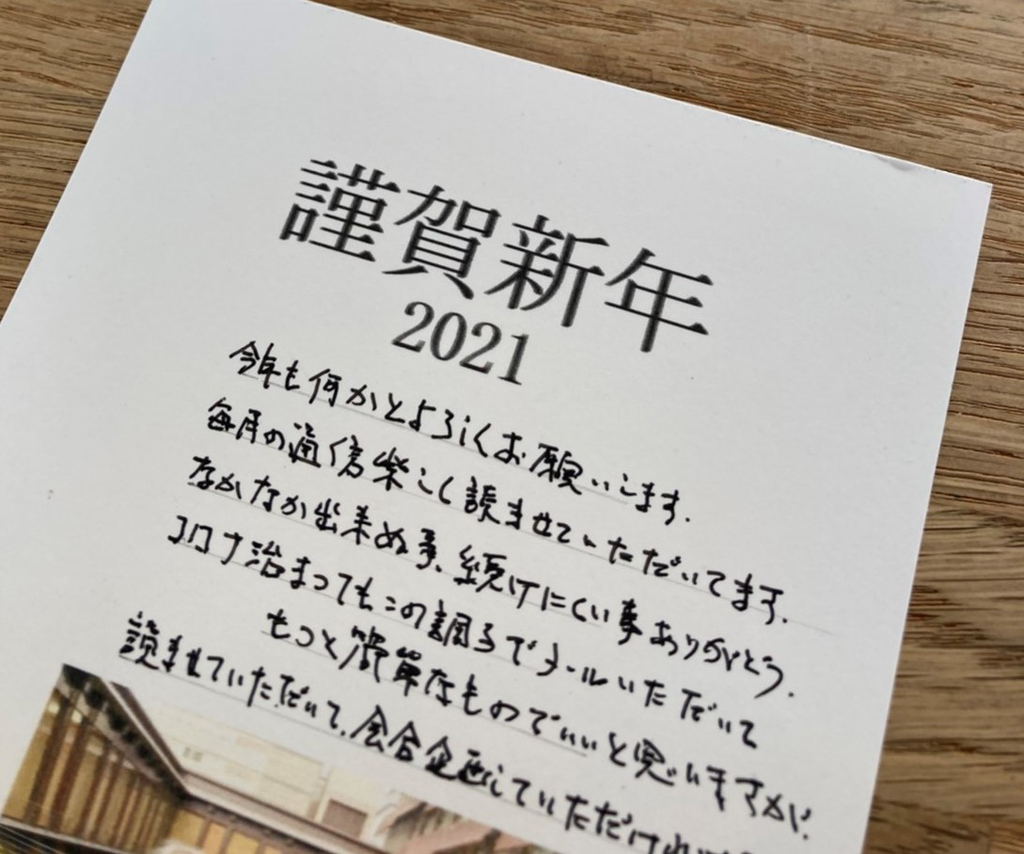 謹賀新年
2021
今年も何かとよろしくお願いします.
毎月の通信楽しく読ませていただいてます.
なかなか出来ぬ事、続けにくい事ありがとう.
コロナ治まってもこの調子でメールいただいて
もっと簡単なものでいいと思いますが、
読ませていただいて、会合企画していただければ